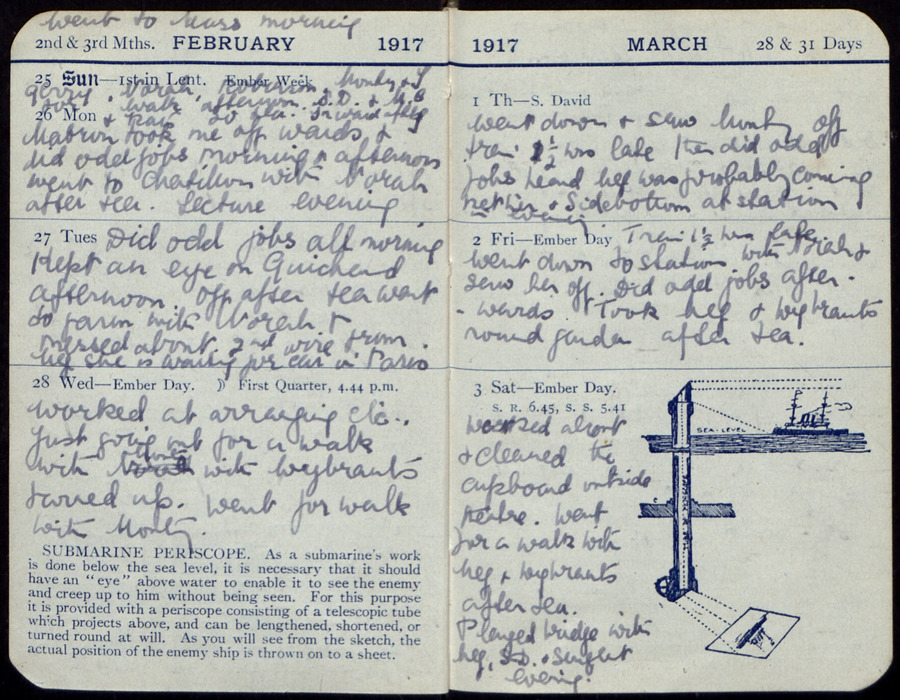 Went to Mass morning
2nd & 3rd Mths. FEBRUARY 1917
25 Sun—1st in Lent. Ember Week
Gerry, Norah,
for walk afternoon. S.D. &
26 Mon & tea.
Matron took me off wards &
did odd jobs morning & afternoon
went to Chatillon with Norah
after tea. Lecture evening
27 Tues Did odd jobs all morning
Kept an eye on Guichend
afternoon. Off after tea went
to farm with Norah &
messed about. 2nd wire from
Meg she is waiting for car in Paris
28 Wed—Ember Day. ☽ First Quarter, 4.44 p.m.
Worked at arranging etc.
Just going out for a walk
with with Wybrants
turned up. Went for walk
with Monty.
SUBMARINE PERISCOPE. As a submarine's work
is done below the sea level, it is necessary that it should
have an "eye" above water to enable it to see the enemy
and creep up to him without being seen. For this purpose
it is provided with a periscope consisting of a telescopic tube
which projects above, and can be lengthened, shortened, or
turned round at will. As you will see from the sketch, the
actual position of the enemy ship is thrown on to a sheet.
1917 MARCH 28 & 31 Days
1 Th—S. David
Went down & saw Monty off
train 1½ hrs late then did odd
jobs heard Meg was probably coming
met her & Sidebottom at station
evening
2 Fri—Ember Day Train 1½ hrs late
Went down to station with Norah &
saw her off. Did odd jobs after-
-wards. Took Meg & Wybrants
round garden after tea.
3 Sat—Ember Day.
S. R. 6.45, S. S. 5.41
Worked about
& cleaned the
cupboard outside
theatre. Went
for a walk with
Meg & Wybrants
after tea.
Played bridge with
Meg, S.D. &
evening.
SEA-LEVEL